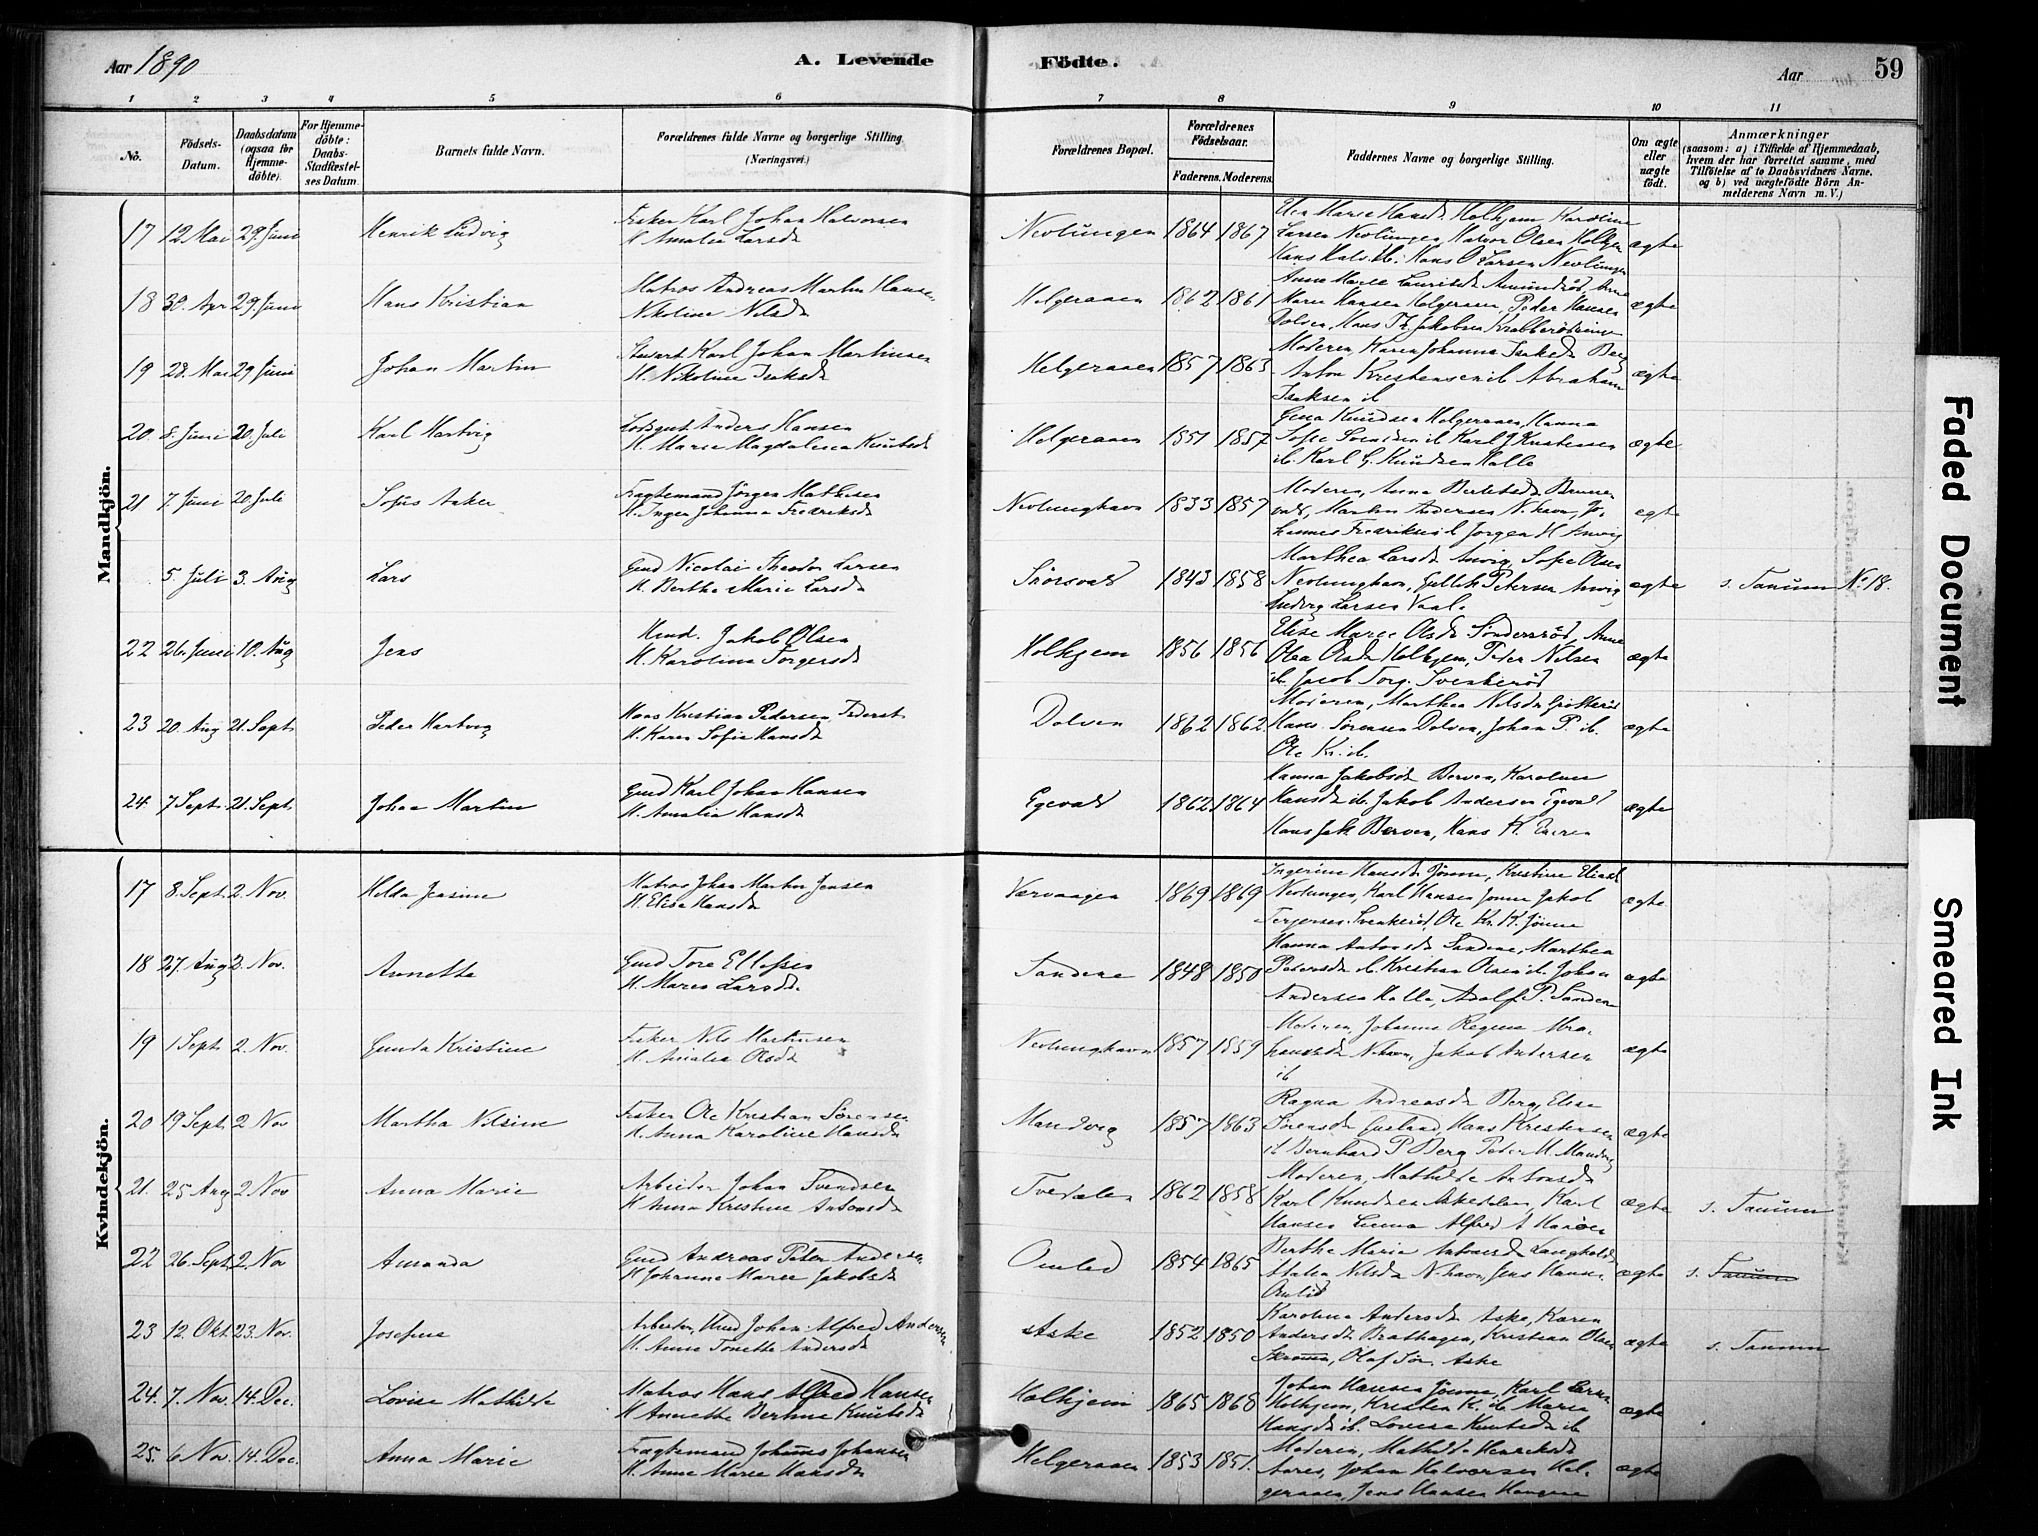 Aar 1890
A. Levende
Födte.
Aar
59
1 2 3 4 5 6 7 8 9 10 11
No.
Födsels-
Datum.
Daabsdatum
(ogsaa for
Hjemme-
döbte).
For Hjemme-
döbte:
Daabs-
Stadfæstel-
ses Datum.
Barnets fulde Navn.
Forældrenes fulde Navne og borgerlige Stilling
(Næringsvei.)
Forældrenes Bopæl.
Forældrenes
Födselsaar.
Faderens. Moderens.
Faddernes Navne og borgerlige Stilling.
Om ægte
eller
uægte
födt.
Anmærkninger
(saasom: a) i Tilfælde af Hjemmedaab,
hvem der har forrettet samme, med
Tilföielse af to Daabsvidners Navne,
og b) ved uægtefödte Börn An-
melderens Navn m. V.)
Mandkjön.
17 12 Mai 29. Juni Henrik Ludvig
Fisker Karl Johan Halvorsen
H. Amalia Larsdr
Nevlungen 1864 1867
Larsen Nevlungen, Halvor Olsen Holkjem
ægte
18 30. Apr 29. Juni Hans Kristian
Matros Andreas Martin Hansen
Nikoline Nilsdr
Helgeraaen 1862 1861
Marie Hansen Helgeraaen, Peder Hansen
ægte
19 28. Mai 29 Juni Johan Martin
Stuvert Karl Johan Martinsen
H. Nikoline Isaksdr
Helgeraaen 1857 1863
Moderen, Karen Johanna Isaksdr Berg
Anton Kristensen ib Abraham
Isaksen ib
ægte
20. 8. Juni 20. Juli Karl Hartvig
Lodsgut Anders Hansen
H. Marie Magdalena Knutsdr
Helgeraaen 1851 1857
Gina Knudsen Helgeraaen, Hanna
Sofie Svendsen ib Karl J Kristensen
ib. Karl G. Knudsen Halle
ægte
21 7. Juni 20. Juli Sofus Anker
Fragtemand Jörgen Mathisen
H. Inger Johanna Fredriksdr
Nevlunghavn 1833 1857
Moderen, Anna
Martin Andersen N.havn, Jo-
hannes Fredriksen ib Jorgen H Anvig
ægte
5. Juli 3. Aug Lars
Gmd Nicolai Theodor Larsen
H. Berthe Marie Larsdr
1843 1858
Marthea Larsdr Anvig, Sofie Olsen
Nevlunghavn, Gullik Petersen Anvig
Ludvig Larsen
ægte
s. Tanum No 18.
22 26. Juni 10. Aug Jens
Hmd. Jakob Olsen
H. Karolina Torgersdr
Holkjem 1856 1856
Elise Marie Olsdr Sönderröd, Anne
Olea Olsdr Holkjem, Peter Nilsen
ib. Jacob Torg. Svenkeröd
ægte
23 20. Aug 21. Sept. Peder Hartvig
Hans Kristian Pedersen,
H. Karen Sofie Hansdr
Dolven 1862 1862.
Moderen, Marthea Nilsdr
Hans Sörensen Dolven, Johan P. ib.
Ole Kr. ib.
ægte
24. 7 Sept. 21. Sept. Johan Martin
Gmd Karl Johan Hansen
H. Amalia Hansdr
1862 1864
Hanna Jakobsdr Berven, Karoline
Hansdr ib. Jakob Andersen
Hans Jak. Berven, Hans K.
ægte
Kvindekjön.
17 8. Sept. 2. Nov. Helda Jensine
Matros Johan Martin Jensen
H. Elise Hansdr
Værvaagen 1869 1869
Ingerine Hansdr Jönne, Kristine
Nevlungen, Karl Hansen Jonne Jakob
Torgersen Svenkeröd, Ole Kr. H. Jönne
ægte.
18 27. Aug 2. Nov. Annette
Gmd Tore Ellefsen
H. Maren Larsdr.
Sandene 1848 1850
Hanna Antonsdr Sandene, Marthea
Petersdr ib. Kristian Olsen ib. Johan
Andersen Halle, Adolf P. Sandene
ægte
19 1 Sept. 2. Nov. Gunda Kristine
Fisker Nils Martinsen
H. Amalia Olsdr
Nevlunghavn 1857 1859
Moderen, Johanne Regine Abra-
hamsdr N.havn, Jakob Andersen
ib
ægte
20 19 Sept. 2 Nov Martha Nilsine
Fisker Ole Kristian Sörensen
H. Anna Karoline Hansdr
Mandvig 1857 1863
Ragna Andreasdr Berg, Elise
Sörensdr Gusland, Hans Kristensen
ib Bernhard P Berg Peder M. Mandvig
ægte
21. 25 Aug 2 Nov Anna Marie
Arbeider Johan Svendsen
H Anna Kristine Antonsdr
Tvedalen 1862 1858
Moderen, Mathilde Antonsdr
Karl Knudsen Askedalen, Karl
Hansen
ægte
s. Tanum
22 26. Sept. 2. Nov Amanda
Gmd Andreas Peter Andersen
H Johanne Marie Jakobsdr
Omlid 1854 1865
Berthe Maria Antonsdr Langholdt
Nilsdr N.havn, Jens Hansen
Omlid
ægte
s. Tanum
23 12. Okt. 23. Nov. Josefine
Arbeider, Hmd Johan Alfred Andersen
H. Anne Tonette Andersdr
Aske 1852 1850
Karoline Andersdr Aske, Karen
Andersdr Brathagen, Kristian Olsen
Olaf Sör. Aske
ægte
s. Tanum
24. 7. Nov. 14. Dec. Lovise Mathilde
Matros Hans Alfred Hansen
H Annette Berthine Knutsdr
Holkjem 1865 1860
Johan Hansen Jönne, Karl Larsen
Holkjem, Kristen K. ib Maria
Hansdr ib. Lovise Knutsdr ib
ægte
25. 6 Nov. 14. Dec. Anna Marie
Fragtemand Johannes Johansen
H. Anne Marie Hansdr
Helgeraaen 1853 1851.
Moderen, Mathilde Henriksdr
Aares, Johan Halvorsen Hel-
geraaen, Jens Hansen
ægte
Faded Document
Smeared Ink